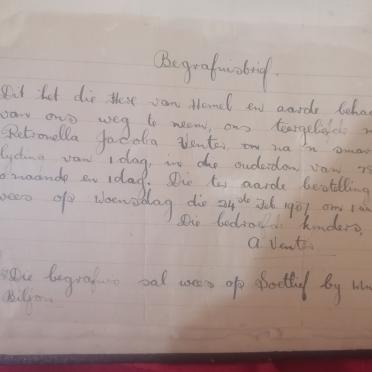 Begrafnisbrief.
Dit het die Here van Hemel en aarde behaa
van ons weg te neem, ons teergeliefde
Petronella Jacoba Venter, om na 'n smar
lyding van 1 dag, in die ouderdom van
maande en 1 dag. Die ter aarde bestelling
wees op Woensdag die 24ste Feb. 190 om 1
Die bedroefde kinders,
A. Venter
Die begrafnis sal wees op Soetlief by
Biljon